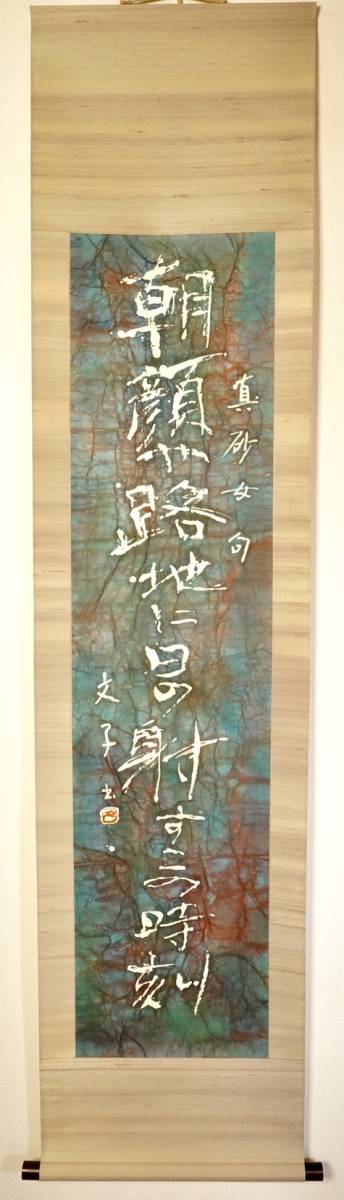 真砂女句
朝顔や路地に日の射すこの時刻
文子書